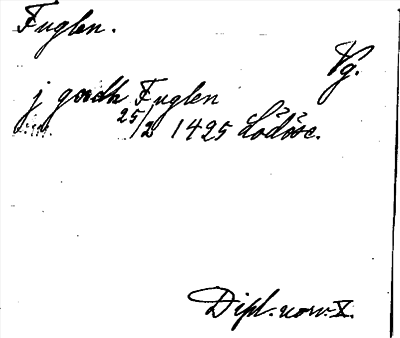 Fuglen.
Vg.
j gardh Fuglen
25/2 1425 Lödöse.
Dipl. norv. X.